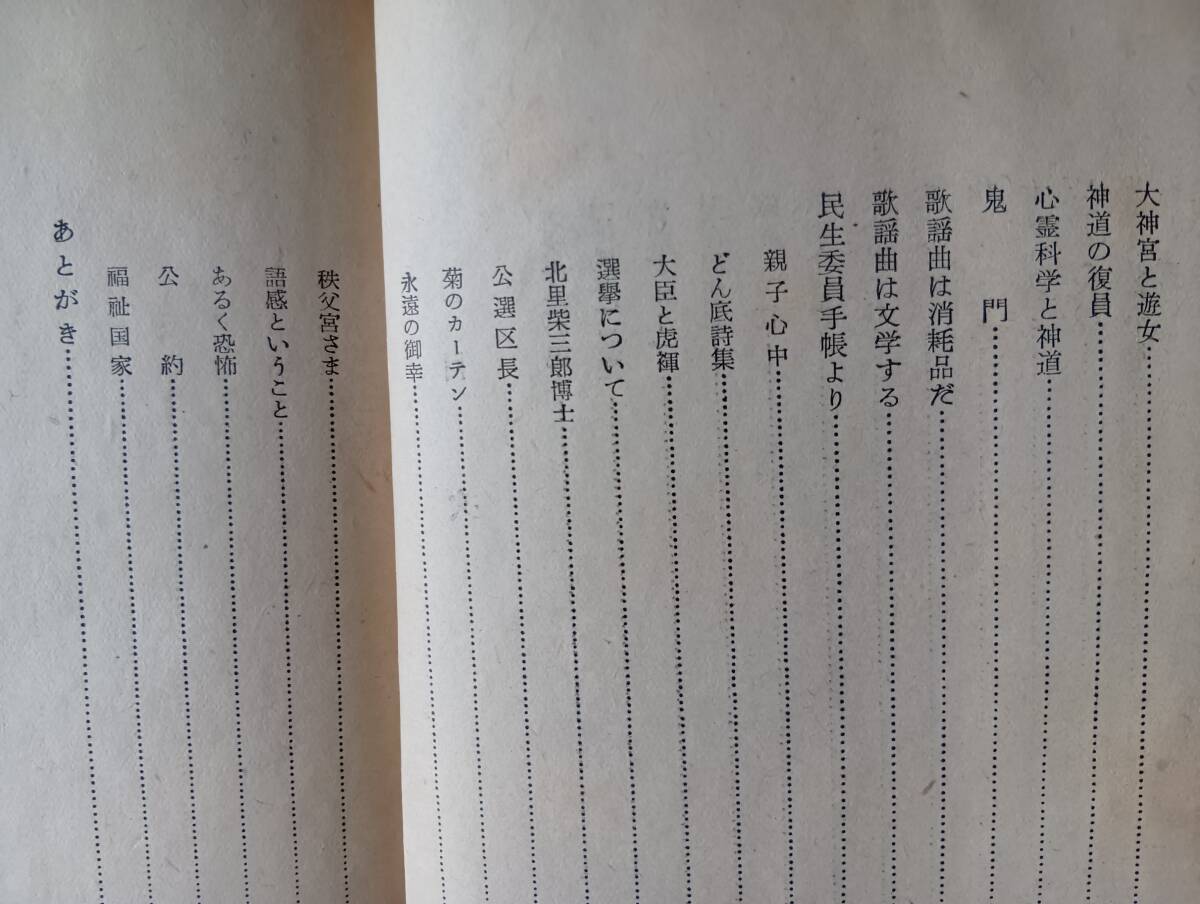 大神宮と遊女……………………
神道の復員……………………
心霊科学と神道……………………
鬼　門……………………
歌謡曲は消耗品だ……………………
歌謡曲は文学する……………………
民生委員手帳より……………………
親子心中……………………
どん底詩集……………………
大臣と虎褌……………………
選擧について……………………
北里柴三郎博士……………………
公選区長……………………
菊のカーテン……………………
永遠の御幸……………………
秩父宮さま……………………
語感ということ……………………
あるく恐怖……………………
公　約……………………
福祉国家……………………
あとがき……………………